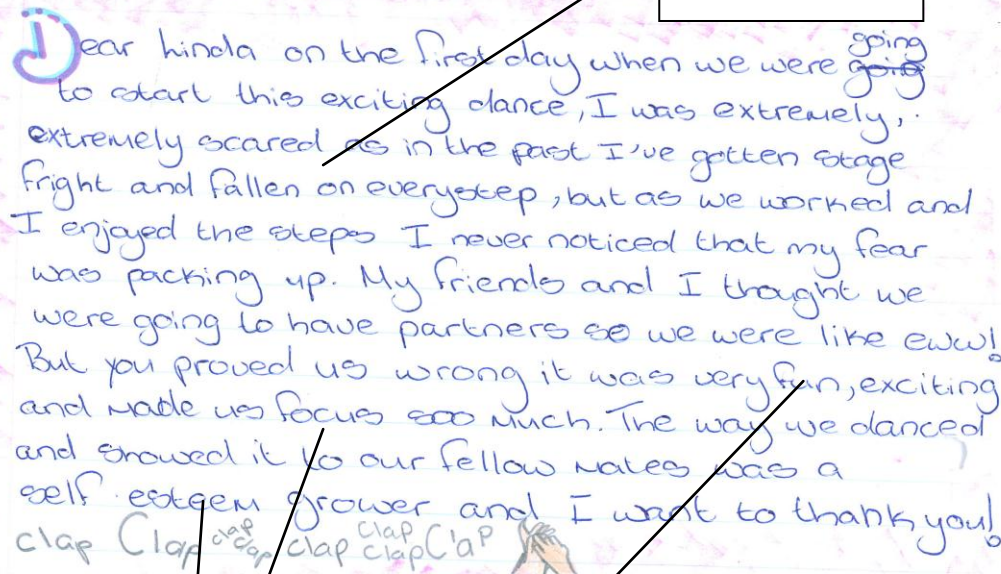 Dear hinda on the first day when we were going going
to start this exciting dance, I was extremely,
extremely scared as in the past I've gotten stage
fright and fallen on everystep, but as we worked and
I enjoyed the steps I never noticed that my fear
was packing up. My friends and I thought we
were going to have partners so we were like eww!
But you proved us wrong it was very fun, exciting
and made us focus soo much. The way we danced
and showed it to our fellow mates was a
self esteem grower and I want to thank you!
clap Clap clap clap clap clap Clap clap Clap